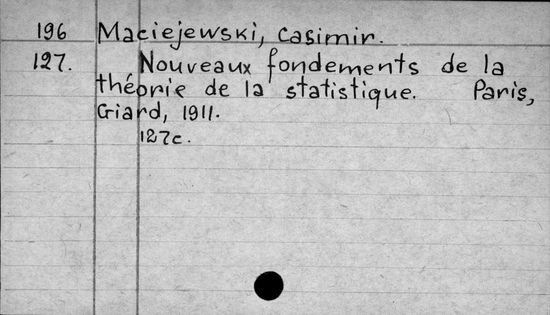 196 Maciejewski, Casimir.
127. Nouveaux fondements de la
théorie de la statistique. Paris,
Giard, 1911.
127c.